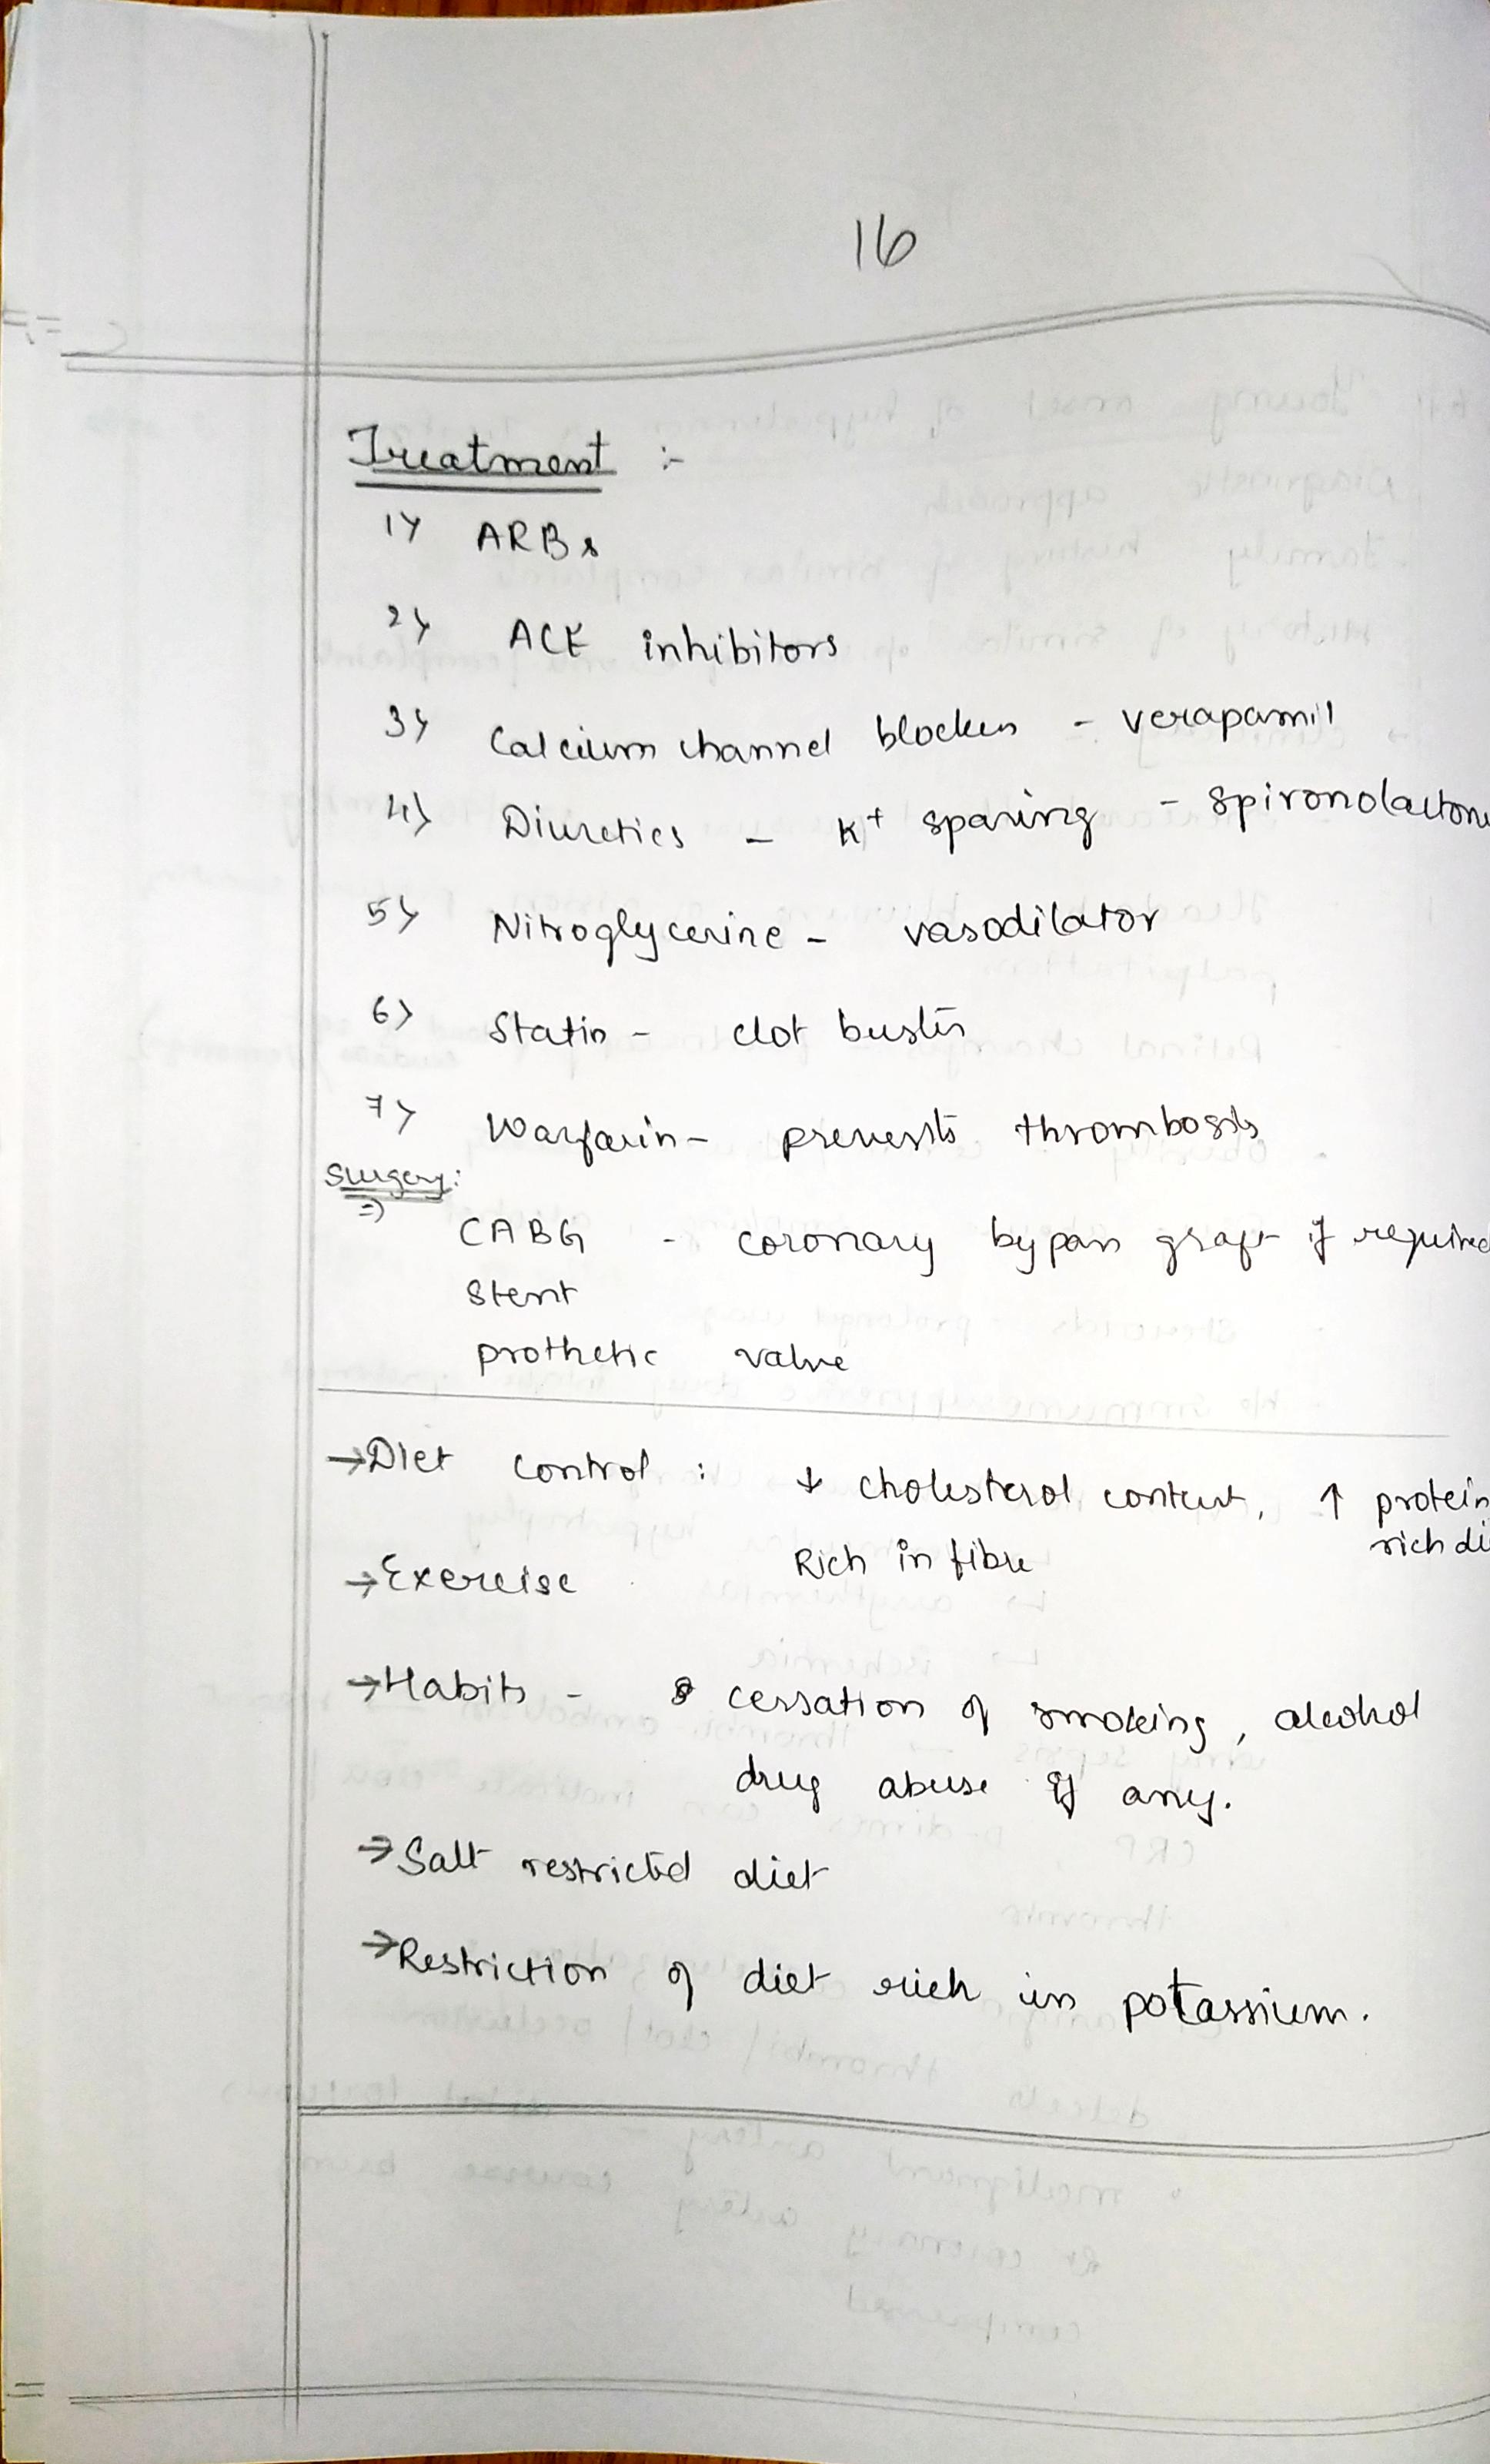 16
Treatment :-
1) ARBs
2) ACE inhibitors
3) Calcium channel blockers - verapamil
4) Diuretics - K+ sparing - spironolactone
5) Nitroglycerine - vasodilator
6) Statin - clot buster
7) Warfarin - prevents thrombosis
Surgery:
⇒
CABG - coronary bypass graft if required
Stent
prothetic valve
→ Diet control : ↓ cholesterol content, ↑ protein
rich di
Rich in fibre
→ Exercise
→ Habits - cessation of smoking, alcohol
drug abuse if any.
→ Salt restricted diet
→ Restriction of diet rich in potassium.